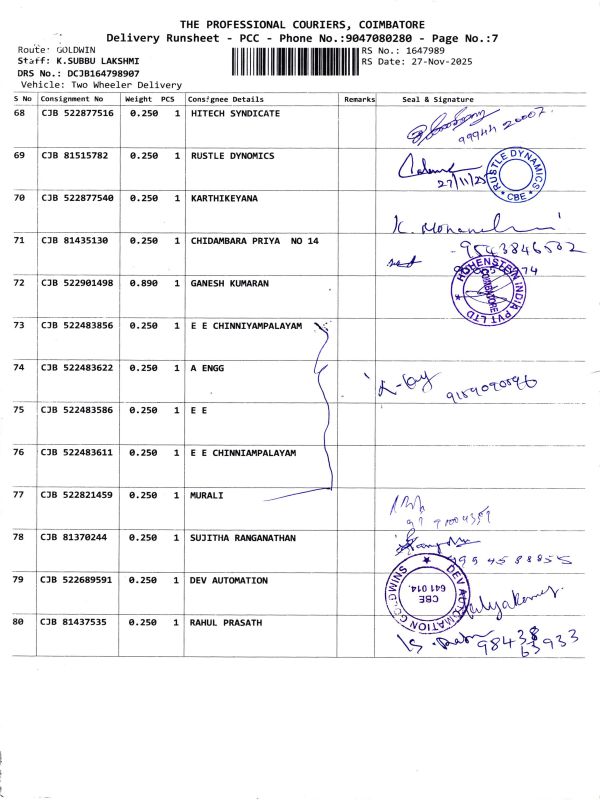 THE PROFESSIONAL COURIERS, COIMBATORE
Delivery Runsheet - PCC - Phone No.:9047080280 - Page No.:7
Route: GOLDWIN
RS No.: 1647989
Staff: K.SUBBU LAKSHMI
RS Date: 27-Nov-2025
DRS No.: DCJB164798907
Vehicle: Two Wheeler Delivery
S No Consignment No Weight PCS Consignee Details Remarks Seal & Signature
68 CJB 522877516 0.250 1 HITECH SYNDICATE
99944 20007.
69 CJB 81515782 0.250 1 RUSTLE DYNOMICS
27/11/25
RUSTLE DYNAMICS
* CBE *
70 CJB 522877540 0.250 1 KARTHIKEYANA
71 CJB 81435130 0.250 1 CHIDAMBARA PRIYA NO 14
9543846502
72 CJB 522901498 0.890 1 GANESH KUMARAN
HOHENSTEIN INDIA PVT LTD
COIMBATORE
73 CJB 522483856 0.250 1 E E CHINNIYAMPALAYAM
74 CJB 522483622 0.250 1 A ENGG
9159090596
75 CJB 522483586 0.250 1 E E
76 CJB 522483611 0.250 1 E E CHINNIAMPALAYAM
77 CJB 522821459 0.250 1 MURALI
78 CJB 81370244 0.250 1 SUJITHA RANGANATHAN
79 CJB 522689591 0.250 1 DEV AUTOMATION
DEV AUTOMATION
CBE
641 014.
80 CJB 81437535 0.250 1 RAHUL PRASATH
98438
63933